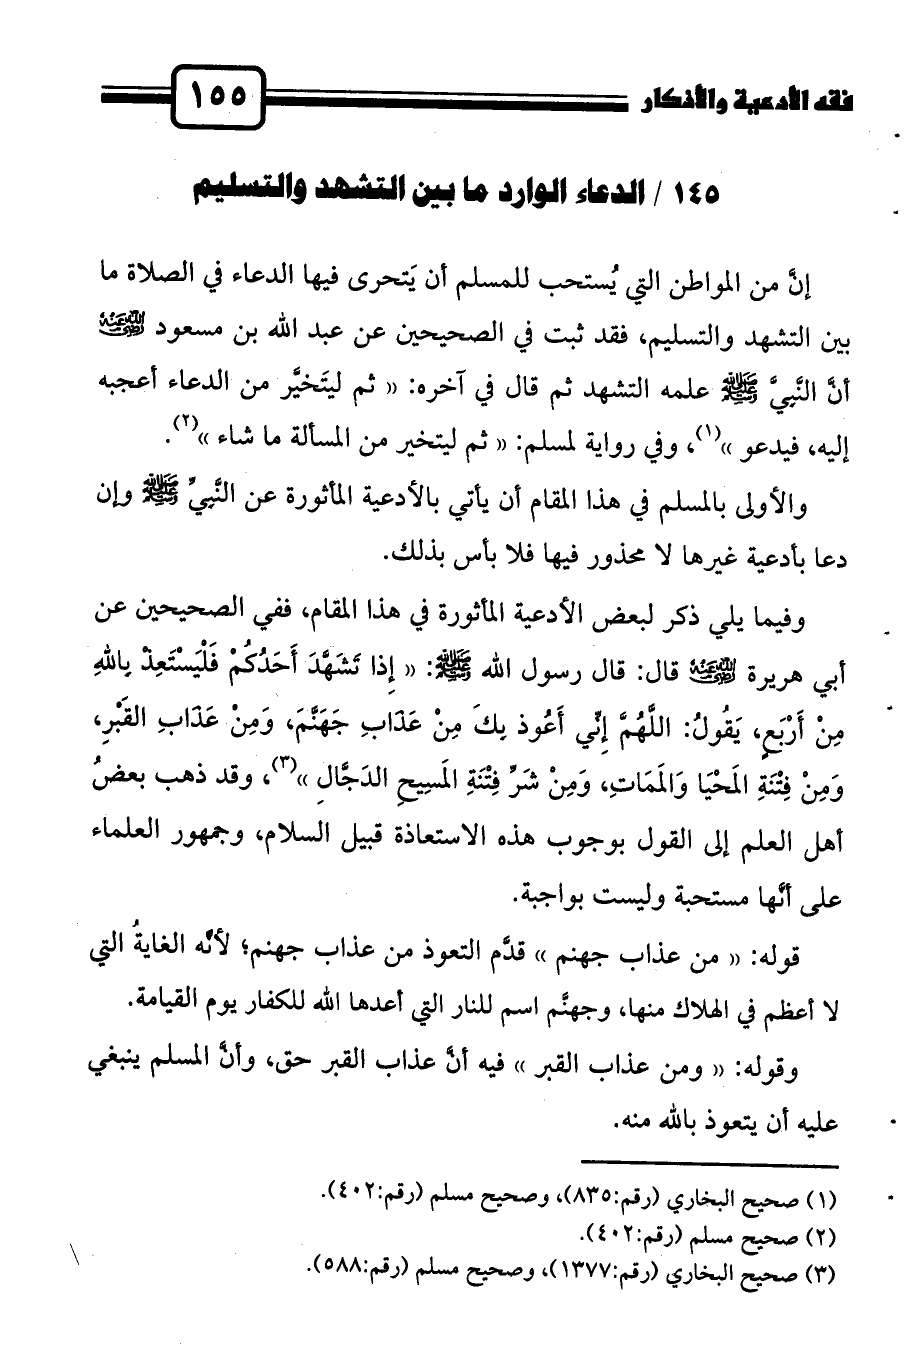 فقه الأدعية والأذكار
١٥٥
١٤٥ / الدعاء الوارد ما بين التشهد والتسليم
إنَّ من المواطن التي يُستحب للمسلم أن يَتحرى فيها الدعاء في الصلاة ما
بين التشهد والتسليم، فقد ثبت في الصحيحين عن عبد الله بن مسعود رضي الله عنه
أنَّ النَّبيَّ ﷺ علمه التشهد ثم قال في آخره: « ثم ليتَخيَّر من الدعاء أعجبه
إليه، فيدعو »(١)، وفي رواية لمسلم: « ثم ليتخير من المسألة ما شاء »(٢).
والأولى بالمسلم في هذا المقام أن يأتي بالأدعية المأثورة عن النَّبيِّ ﷺ وإن
دعا بأدعية غيرها لا محذور فيها فلا بأس بذلك.
وفيما يلي ذكر لبعض الأدعية المأثورة في هذا المقام، ففي الصحيحين عن
أبي هريرة رضي الله عنه قال: قال رسول الله ﷺ: « إِذا تَشَهَّدَ أَحَدُكُمْ فَلْيَسْتَعِذْ بِاللهِ
مِنْ أَرْبَعٍ، يَقُولُ: اللَّهُمَّ إِنِّي أَعُوذ بِكَ مِنْ عَذَابِ جَهَنَّمَ، وَمِنْ عَذَابِ القَبْرِ،
وَمِنْ فِتْنَةِ المَحْيَا وَالمَمَاتِ، وَمِنْ شَرِّ فِتْنَةِ المَسِيحِ الدَجَّالِ »(٣)، وقد ذهب بعضُ
أهل العلم إلى القول بوجوب هذه الاستعاذة قبيل السلام، وجمهور العلماء
على أنَّها مستحبة وليست بواجبة.
قوله: « من عذاب جهنم » قدَّم التعوذ من عذاب جهنم؛ لأنَّه الغايةُ التي
لا أعظم في الهلاك منها، وجهنَّم اسم للنار التي أعدها الله للكفار يوم القيامة.
وقوله: « ومن عذاب القبر » فيه أنَّ عذاب القبر حق، وأنَّ المسلم ينبغي
عليه أن يتعوذ بالله منه.
(١) صحيح البخاري (رقم:٨٣٥)، وصحيح مسلم (رقم:٤٠٢).
(٢) صحيح مسلم (رقم:٤٠٢).
(٣) صحيح البخاري (رقم:١٣٧٧)، وصحيح مسلم (رقم:٥٨٨).